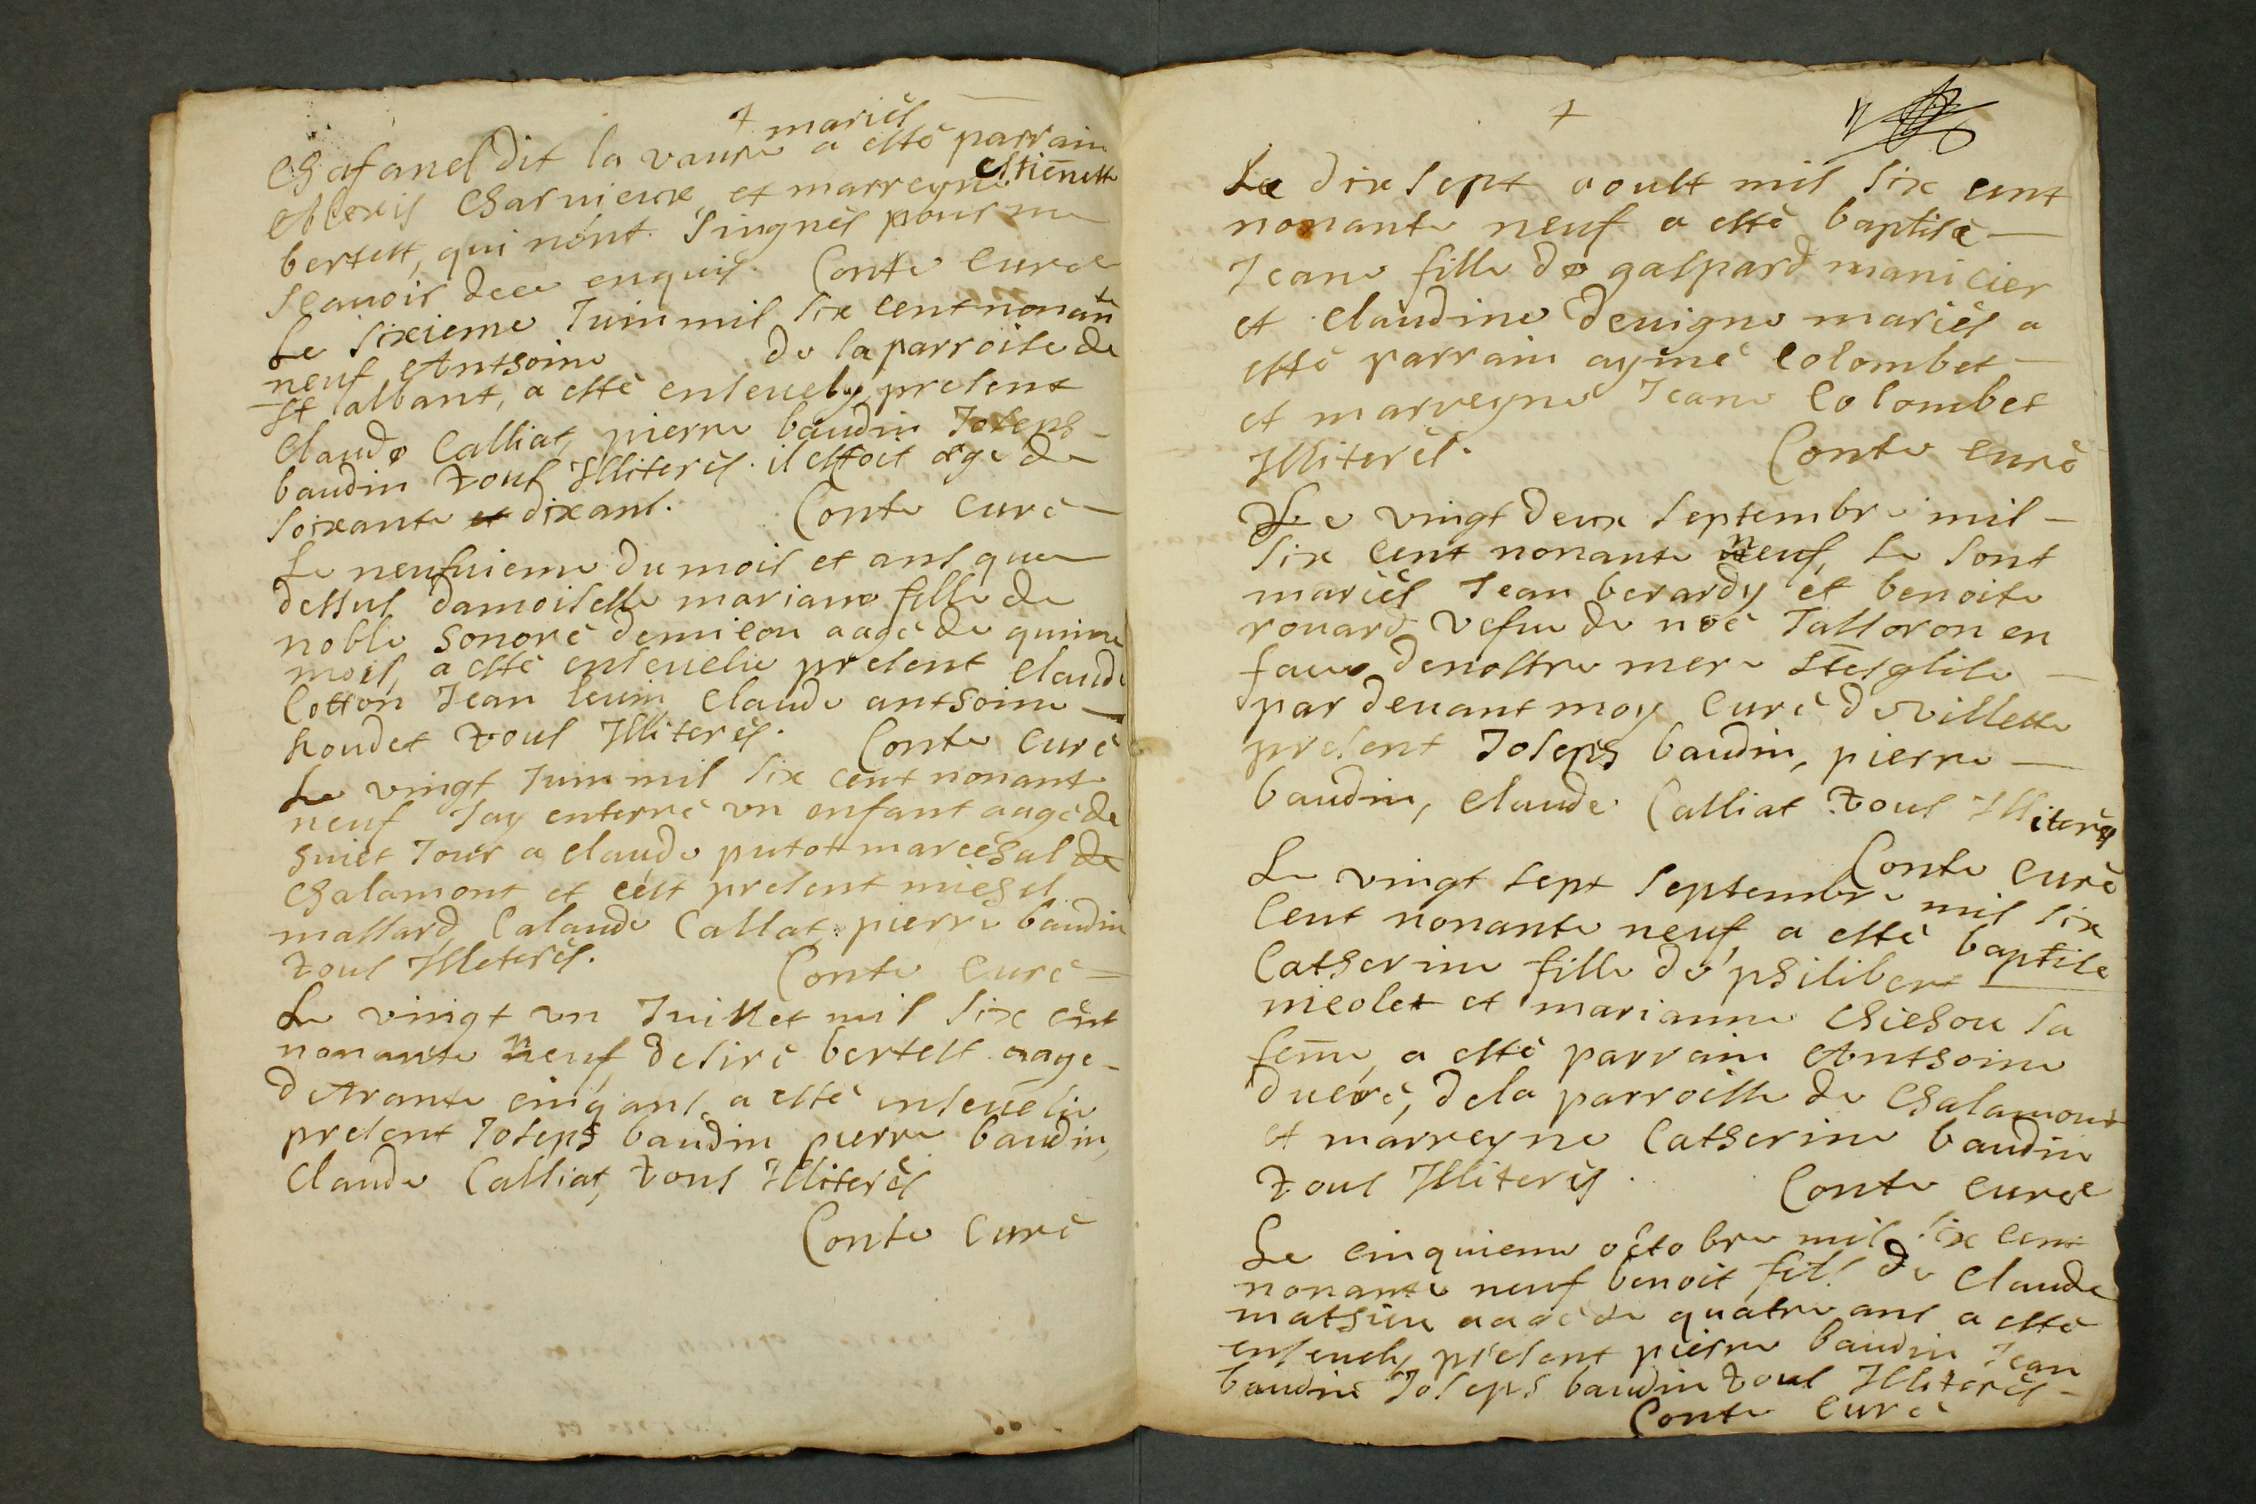 + mariés
Chafanel dit la vaure a esté parrain
Alexis Charnieux, et marreyne estienette
bertett, qui n'ont singnés pour ne
scauoir dece enquis. Conte Curée
Le sixieme Iuin mil six cent nonante
neuf Anthoine de la parroise de
St albant, a esté enseuely present
Claude Calliat, pierre baudin Joseph
baudin tous Illiterés. il estoit age de
soixante et dix ans. Conte Curé
Le neufuieme du mois et ans que
dessus damoiselle mariane fille de
noble honoré demicon aagé de quinze
mois, a esté enseuelie present Claude
Cotton Jean leuin, Claude anthoine
houdet tous Illiterés. Conte Curé
Le vingt Iuin mil six cent nonante
neuf Jay enterré vn enfant aagé de
huict Jour a claude putott marechal de
Chalamont et cest present michel
massard, Calaude Callat, pierre baudin
tous Illeterés. Conte Curé
Le vingt vn Iuillet mil six cent
nonante neuf desiré bertett aage
detrante cinq ans a esté enseuelie
present Joseph baudin pierre baudin,
Claude Calliat, tous Illiterés
Conte Curé
+
Le dix sept aoust mil six cent
nonante neuf a esté baptisé
Jeane fille de gaspard manicier
et claudine deuigne mariés a
esté parrain aymé Colombet
et marreyne Jeane Colombet
Illiterés. Conte Curé
Le vingt deux septembre mil
six cent nonante neuf, se sont
mariés Jean berardy et benoite
rouard vefue de noé Talloron en
face denostre mere Ste esglise
par deuant moy Curé de villette
present Joseph baudin, pierre
baudin, claude Calliat tous Illiterés
Conte Curé
Le vingt sept septembre mil six
Cent nonante neuf, a esté baptise
Catherine fille de philibert
nicolet et marianne Chichou sa
feme, a esté parrain Anthoine
dueré, dela parroisse de Chalamont
et marreyne Catherine baudin
tous Illiterés. Conte Curée
Le cinquieme octobre mil six cent
nonante neuf benoit fils de Claude
mathieu aagé de quatre ans a esté
enseuely present pierre baudin Jean
baudin Joseph baudin tous Illiterés
Conte Curé